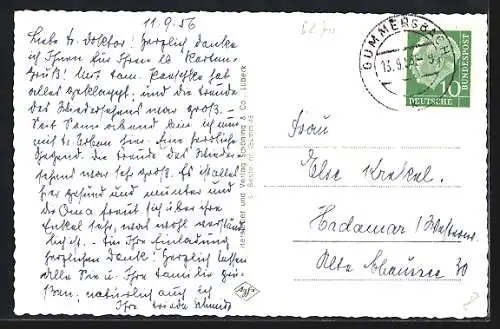 11.9.56
Liebe Fr. Doktor! Herzlich danke
ich Ihnen für Ihren lb Karten-
gruß! Mit Fam. hat
alles geklappt, und die Freude
des Wiedersehens war groß. -
Seit Sonnabend bin ich nun
mit hier. Eine herrliche
Gegend. Die Freude des Wieder-
sehens war sehr groß. Es ist alles
hier gesund und munter und
die Oma freut sich über ihre
Enkel sehr, was wohl verständ-
lich ist. - Für Ihre Einladung
herzlichen Dank! Herzlich lassen
alle Sie u. Ihre Familie grü-
ßen, natürlich auch ich
Ihre Frieda Schmidt
Hersteller und Verlag Schöning & Co., Lübeck
Agfa
GUMMERSBACH
13.9.56
10
DEUTSCHE
BUNDESPOST
Frau
Else Krekel.
Hadamar / Westerw.
Alte Chaussee 30